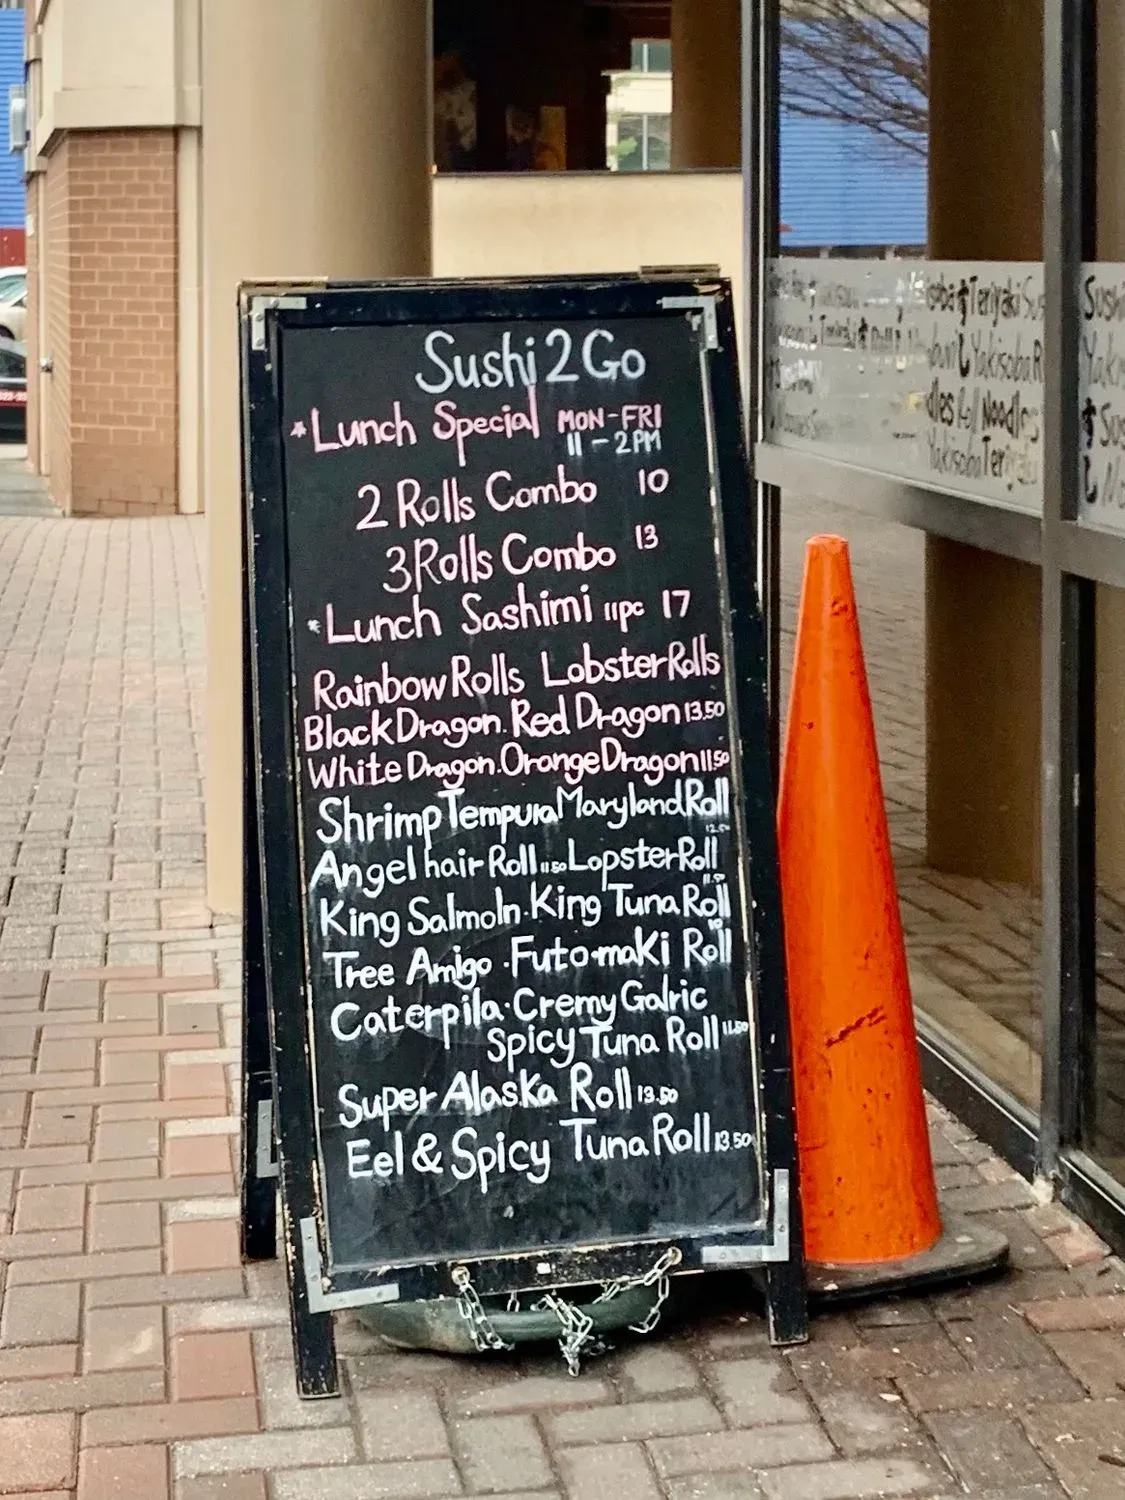 Sushi 2 Go
*Lunch Special MON-FRI
11 - 2PM
2 Rolls Combo 10
3 Rolls Combo 13
*Lunch Sashimi 11pc 17
Rainbow Rolls Lobster Rolls
Black Dragon. Red Dragon 13.50
White Dragon. Orange Dragon 11.50
Shrimp Tempura Maryland Roll
Angel hair Roll 11.50 Lopster Roll
King Salmoln. King Tuna Roll
Tree Amigo · Futo-maki Roll
Caterpila · Cremy Galric
Spicy Tuna Roll 11.50
Super Alaska Roll 13.50
Eel & Spicy Tuna Roll 13.50
Teriyaki Sus
Yakisoba R
Noodles
Yakisoba Teriyaki